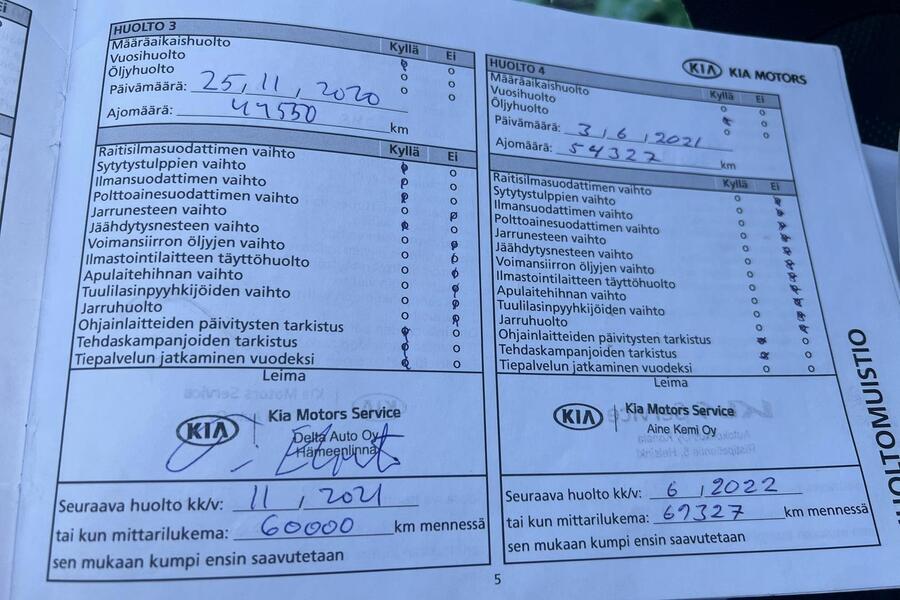 HUOLTO 3
Kyllä Ei
Määräaikaishuolto
Vuosihuolto
Öljyhuolto
Päivämäärä: 25, 11, 2020
Ajomäärä: 44550 km
Kyllä Ei
Raitisilmasuodattimen vaihto
Sytytystulppien vaihto
Ilmansuodattimen vaihto
Polttoainesuodattimen vaihto
Jarrunesteen vaihto
Jäähdytysnesteen vaihto
Voimansiirron öljyjen vaihto
Ilmastointilaitteen täyttöhuolto
Apulaitehihnan vaihto
Tuulilasinpyyhkijöiden vaihto
Jarruhuolto
Ohjainlaitteiden päivitysten tarkistus
Tehdaskampanjoiden tarkistus
Tiepalvelun jatkaminen vuodeksi
Leima
KIA Kia Motors Service
Delta Auto Oy
Hämeenlinna
Seuraava huolto kk/v: 11, 2021
tai kun mittarilukema: 60000 km mennessä
sen mukaan kumpi ensin saavutetaan
KIA KIA MOTORS
HUOLTO 4
Kyllä Ei
Määräaikaishuolto
Vuosihuolto
Öljyhuolto
Päivämäärä: 3, 6, 2021
Ajomäärä: 54327 km
Kyllä Ei
Raitisilmasuodattimen vaihto
Sytytystulppien vaihto
Ilmansuodattimen vaihto
Polttoainesuodattimen vaihto
Jarrunesteen vaihto
Jäähdytysnesteen vaihto
Voimansiirron öljyjen vaihto
Ilmastointilaitteen täyttöhuolto
Apulaitehihnan vaihto
Tuulilasinpyyhkijöiden vaihto
Jarruhuolto
Ohjainlaitteiden päivitysten tarkistus
Tehdaskampanjoiden tarkistus
Tiepalvelun jatkaminen vuodeksi
Leima
KIA Kia Motors Service
Aine Kemi Oy
Seuraava huolto kk/v: 6, 2022
tai kun mittarilukema: 69327 km mennessä
sen mukaan kumpi ensin saavutetaan
5
HUOLTOMUISTIO